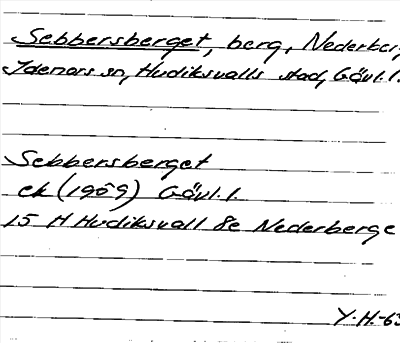 Sebbersberget, berg, Nederber
Idenors sn, Hudiksvalls stad, Gävl.l.
Sebbersberget
ek (1959) Gävl.l.
15 H Hudiksvall 8e Nederberge
Y.H.-63